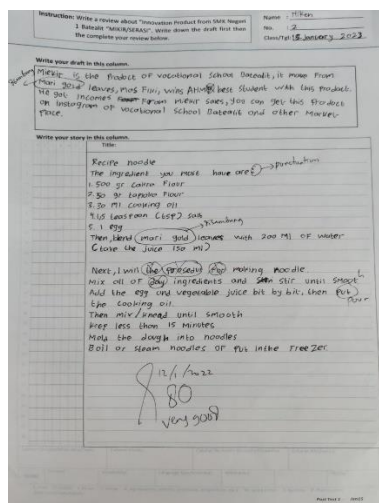 Instruction: Write a review about "Innovation Product from SMK Negeri
1 Batealit "MIKIR/SERASI". Write down the draft first then
the complete your review below.
Name :
No. : 2
Class/Tgl: 18 January 2023
Write your draft in this column.
Miekir is the Product of vocational School Batealit, it made From
Mari gold leaves, mas Fikri, wins best Student with this Product.
He got incomes From Miekir sales, you can get this Product
on Instagram of vocational School Batealit and other Market-
Place.
Write your story in this column.
Title:
Recipe noodle
The ingredient you must have are : punctuation
1. 500 gr Cakra Flour
2. 50 gr tapioka Flour
3. 30 Ml cooking oil
4. 1,5 teaspoon (tsp) salt
5. 1 egg
Then, blend mari gold leaves with 200 Ml OF water
(take the juice 150 ml)
Next, I will the making noodle.
Mix all of ingredients and stir until smoot h
Add the egg and vegetable juice bit by bit, then put pour
the cooking oil.
Then mix/knead until smooth
Keep less than 15 Minutes
Mold the dough into noodles
Boil or steam noodles or put in the Freezer
12/1/2022
80
very good
Post Test 2